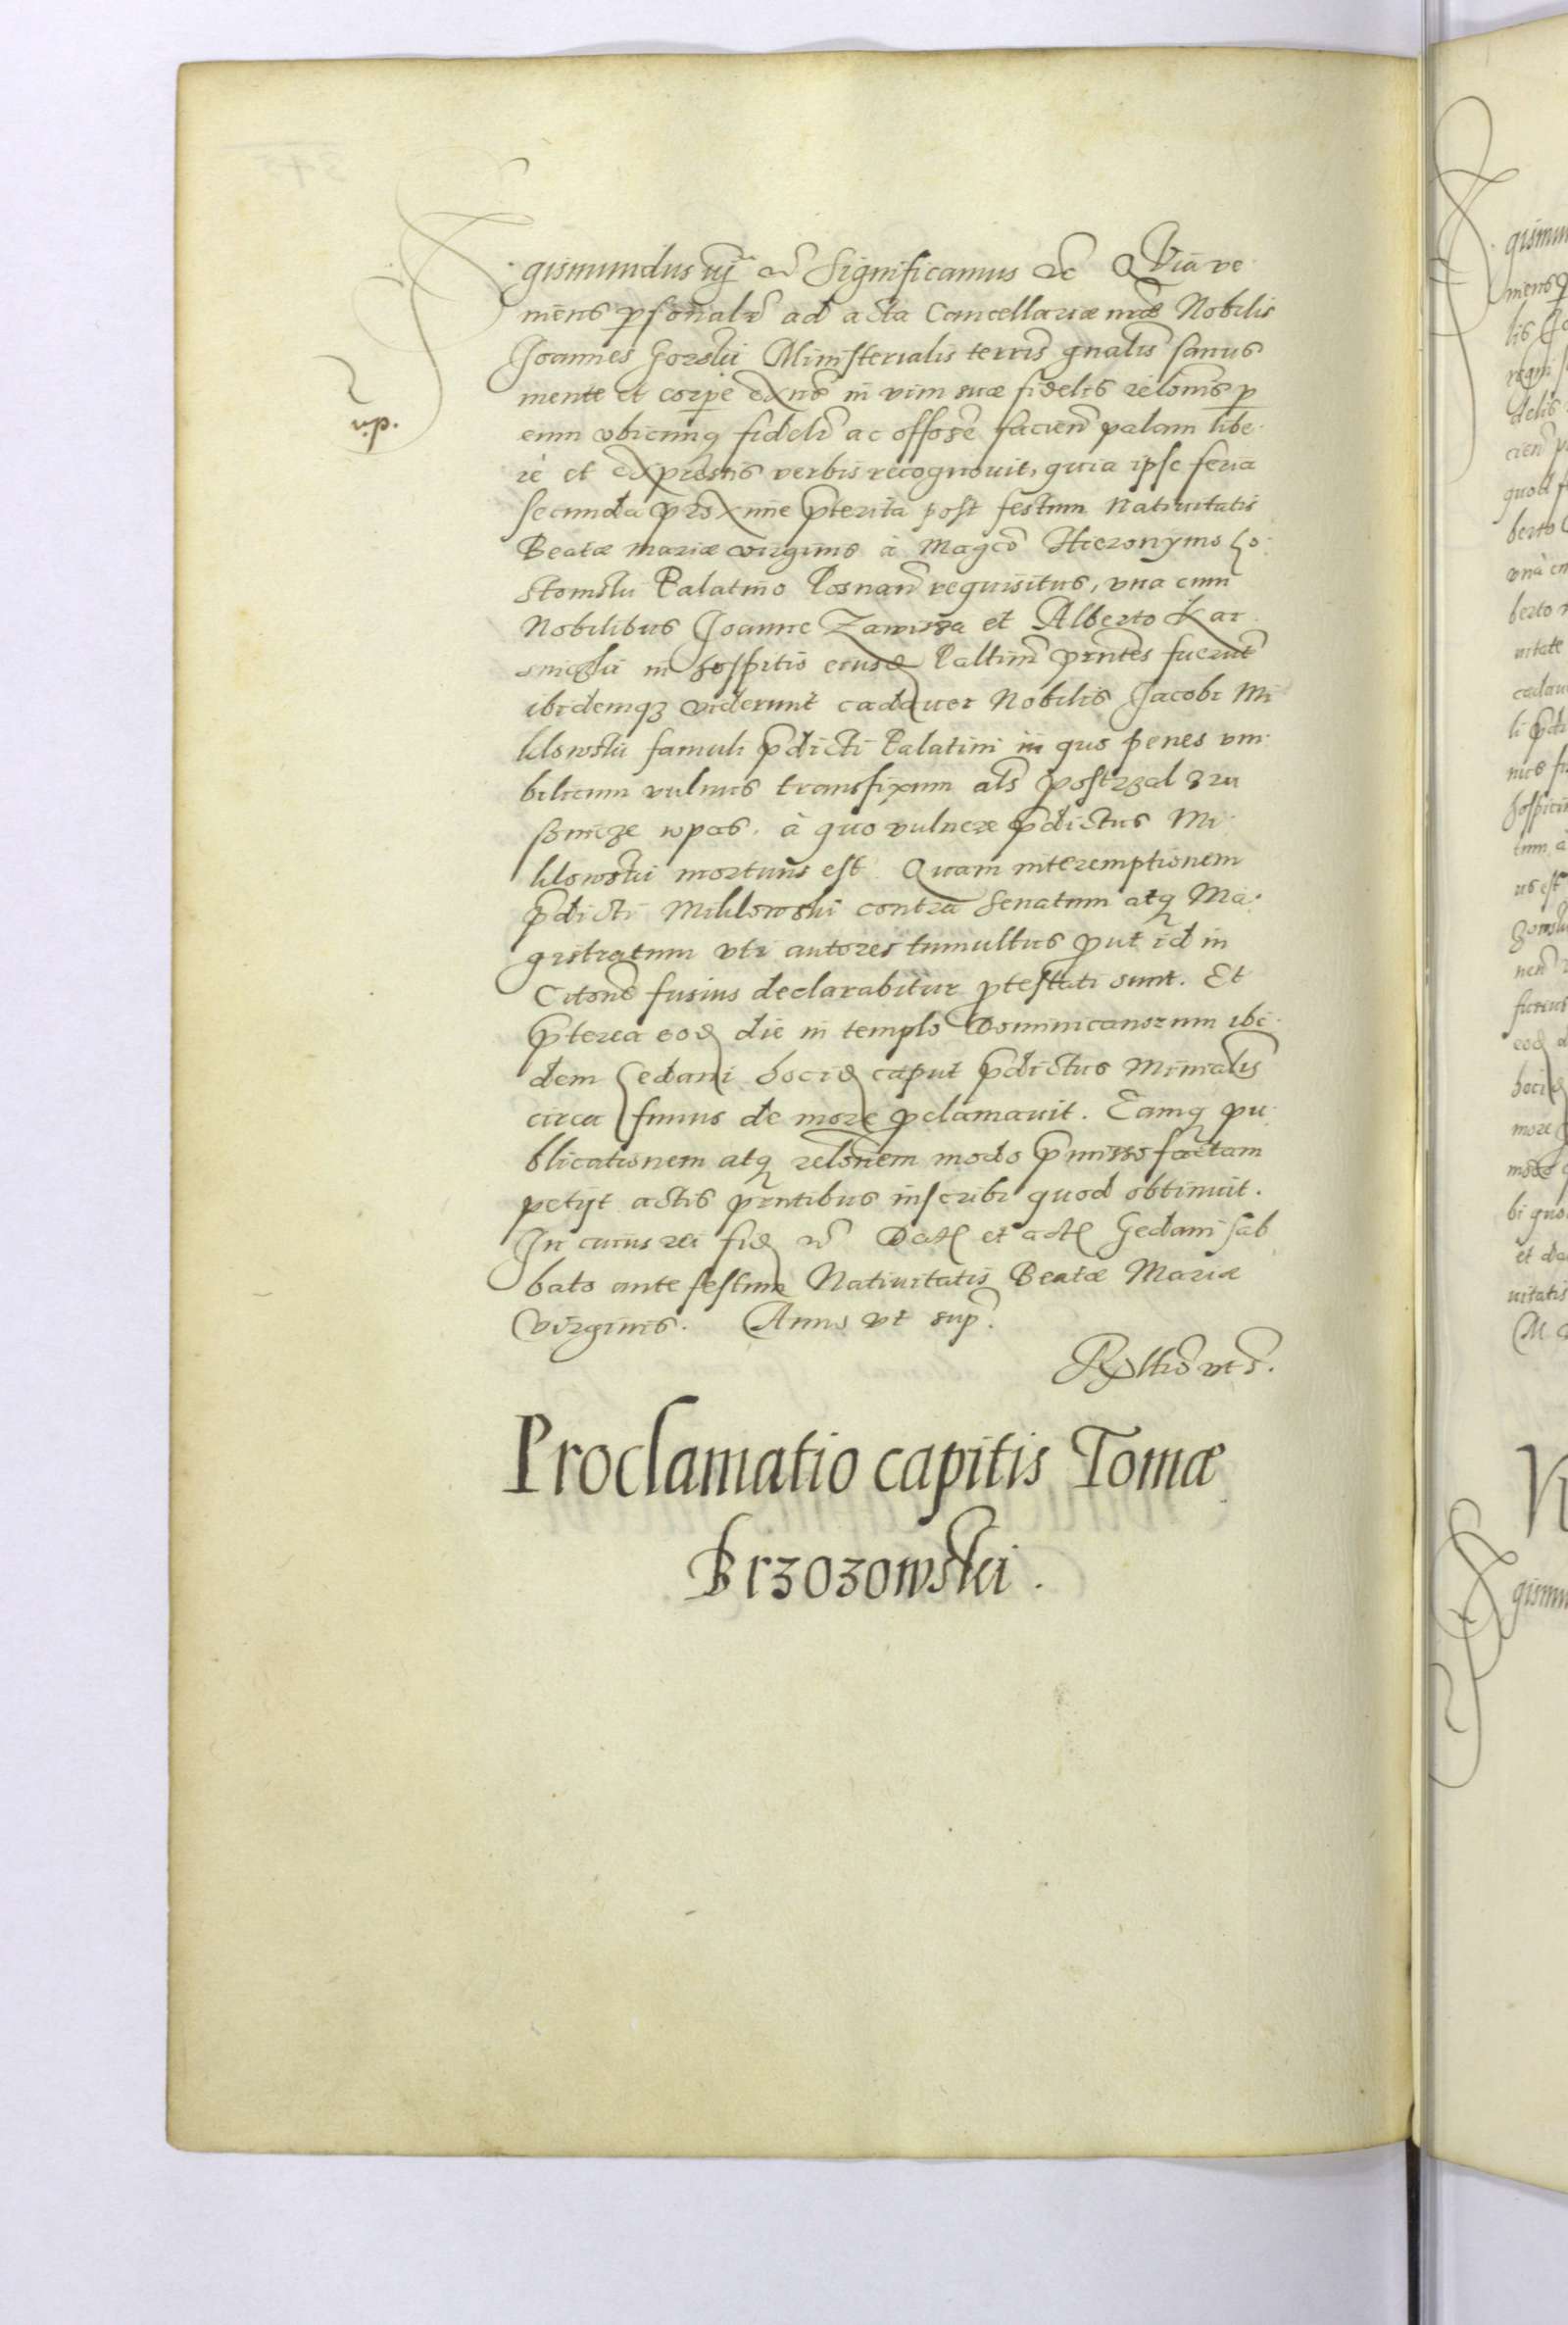 Sigismundus iij etc Significamus etc Quia ve-
niens p̱sonalr̃ ad acta Cancellariæ nr̃æ Nobilis
Joannes Gorski Ministerialis terris gn̄alis sanus
mente et corpe exñs in vim suæ fidelis relōnis p̱
eum vbicunq fidelr̃ ac offose facien̄ palam libe-
rè et expressis verbis recognouit, quia ipse feria
secunda proxime p̄terita post festum Natiuitatis
Beatæ Mariæ virginis à Magco Hieronymo Go-
stomski Palatino Posnan̄ requisitus, vna cum
Nobilibus Joanne Zawissa et Alberto Kar
snicki in hospitio eiusd Paltini p̄ntes fuerūt
ibidemqz viderunt cadauer Nobilis Jacobi Mi
klowski famuli p̄dicti Palatini in quo penes vm-
bilicum vulnus transfixum als postrzal z ru
sznicze wpas. à quo vulnere p̄dictus Mi-
klowski mortuus est. Quam interemptionem
p̄dicti Miklowski contra Senatum atq Ma-
gistratum vti autores tumultus put id in
Citōne fusius declarabitur p̱testati sunt. Et
p̄terea eod die in templo Dominicanorum ibi-
dem Gedani hocid caput p̄dictus Minralis
circa funus de more p̱clamauit. Eamq pu-
blicationem atq relōnem modo p̄misso factam
petijt actis p̄ntibus inscribi quod obtinuit.
In cuius rei fid etc Dat et act Gedani sab
bato ante festum Natiuitatis Beatæ Mariæ
Virginis. Anno vt sup.
Proclamatio capitis Tomæ
Brzozowski.